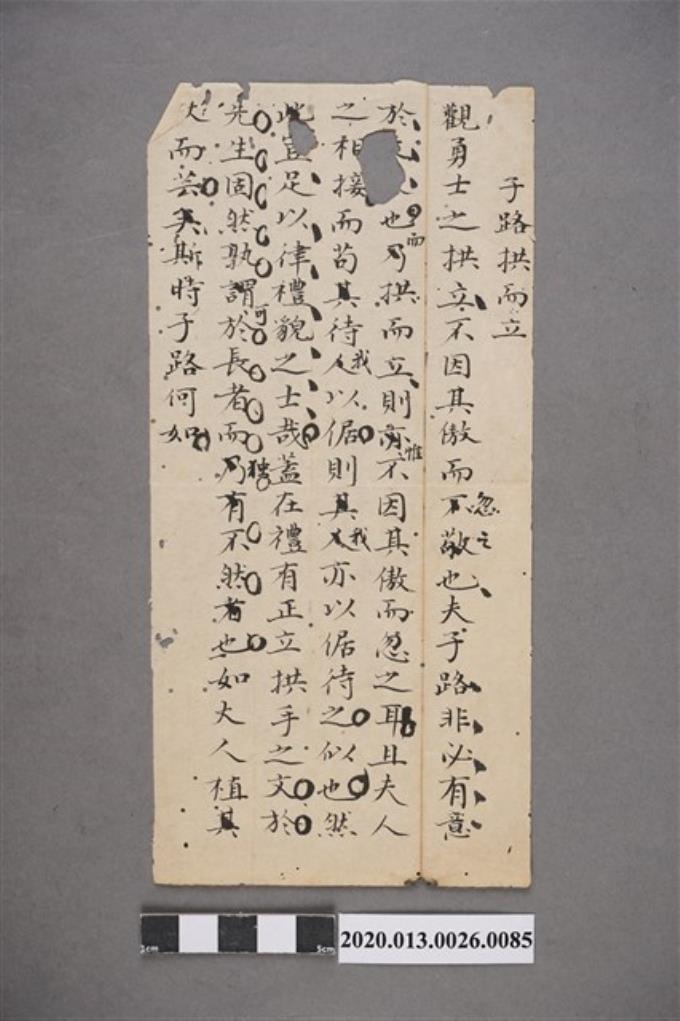 子路拱而立
觀勇士之拱立不因其傲而不敬也夫子路非必有意
忽之
於也乃拱而立則亦不因其傲而忽之耳且夫人
而
惟
之相接而苟其待人以倨則其人亦以倨待之似也然
我
我
此豈足以律禮貌之士哉蓋在禮有正立拱手之文於
先生固然孰謂於長者而乃有不然者也如大人植其
可
独
杖而芸矣斯時子路何如
1cm
5cm
2020.013.0026.0085